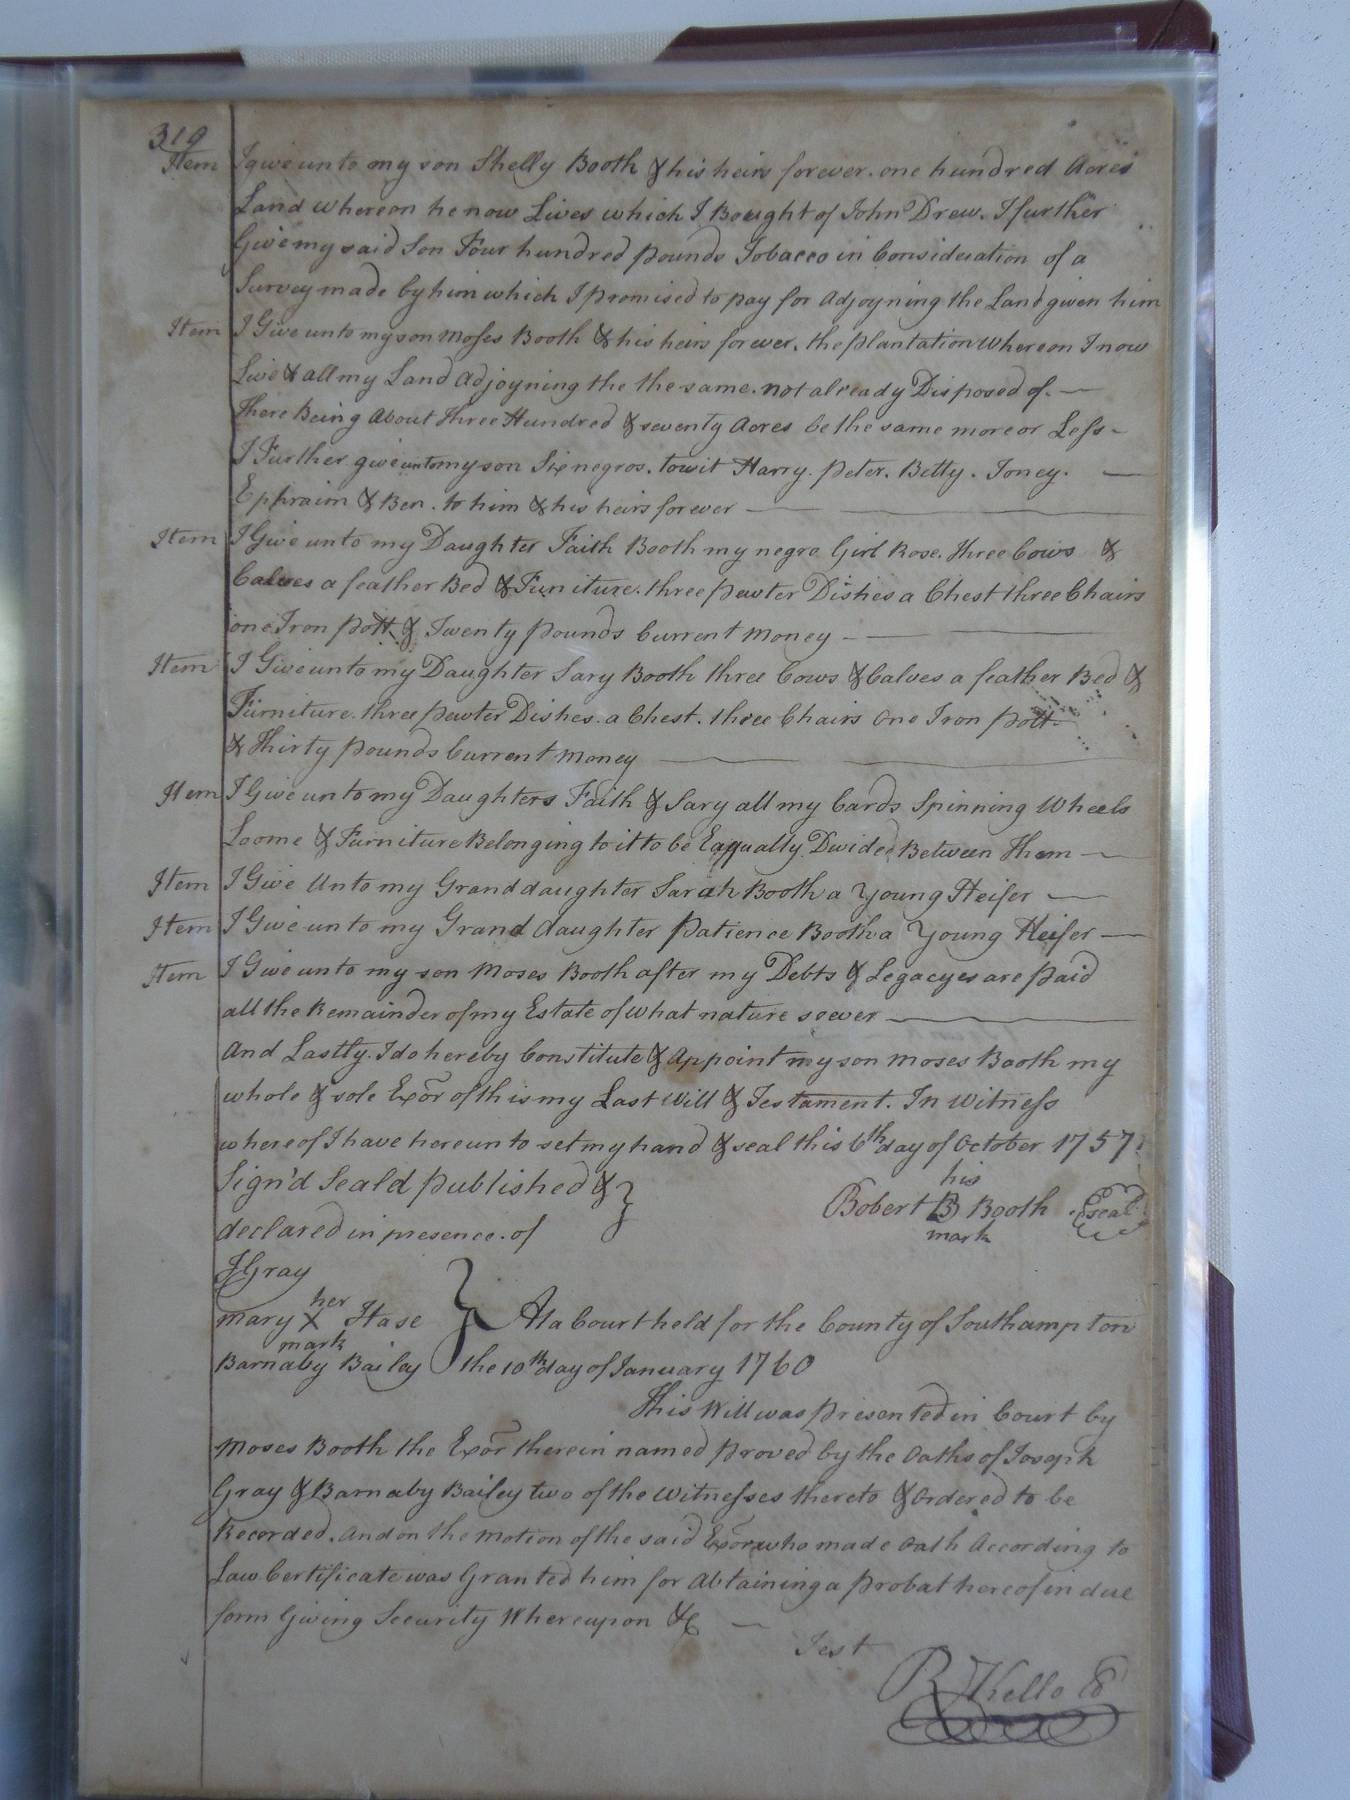 319
Item I give unto my son Shelly Booth & his heirs forever. one hundred Acres
Land whereon he now Lives which I Bought of John Drew. I further
Give my said Son Four hundred pounds Tobacco in Consideration of a
Survey made by him which I promised to pay for Adjoyning the Land given him
Item I Give unto my son Moses Booth & his heirs forever. the plantation Whereon I now
Live & all my Land Adjoyning the the same. not already Disposed of. —
There Being About Three Hundred & seventy Acres be the same more or Less -
I Further give unto my son Six negros. towit Harry. Peter. Betty. Toney. —
Ephraim & Ben. to him & his heirs forever —
Item I Give unto my Daughter Faith Booth my negro Girl Rose. three Cows &
Calves a feather Bed & Furniture. three pewter Dishes a Chest three Chairs
one Iron pott & Twenty pounds Current money —
Item I Give unto my Daughter Sary Booth three Cows & Calves a feather Bed &
Furniture. three pewter Dishes. a Chest. three Chairs one Iron pott
& Thirty pounds Current money —
Item I Give unto my Daughters Faith & Sary all my Cards Spinning Wheels
Loome & Furniture Belonging to it to be Eaqually Divided Between Them —
Item I Give Unto my Granddaughter Sarah Booth a Young Heifer —
Item I Give unto my Grand daughter Patience Booth a Young Heifer —
Item I Give unto my son Moses Booth after my Debts & Legacyes are paid
all the Remainder of my Estate of What nature soever —
And Lastly. I do hereby Constitute & Appoint my son Moses Booth my
whole & sole Exor of this my Last Will & Testament. In Witness
whereof I have hereunto set my hand & seal this 6th day of October 1757
Sign'd Seald published &
declared in presence. of
his
Robert B Booth Seal
mark
J Gray
her
Mary X Hase
mark
Barnaby Bailey
At a Court held for the County of Southampton
the 10th day of January 1760
This Will was presented in Court by
Moses Booth the Exor therein named proved by the Oaths of Joseph
Gray & Barnaby Bailey two of the Witnesses thereto & Ordered to be
Recorded. And on the Motion of the said Exor who made Oath According to
Law Certificate was Granted him for Abtaining a probat hereof in due
form Giving Security Whereupon &c —
Test
R Kello